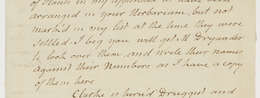 of Plants in my
arranged in your Herbarium, but not
marked in my list at the time they were
settled I beg you will get Mr Dryander
to look over them, and write their names
against their Numbers as I have a copy
of them here
Clarke is hired Drugged and